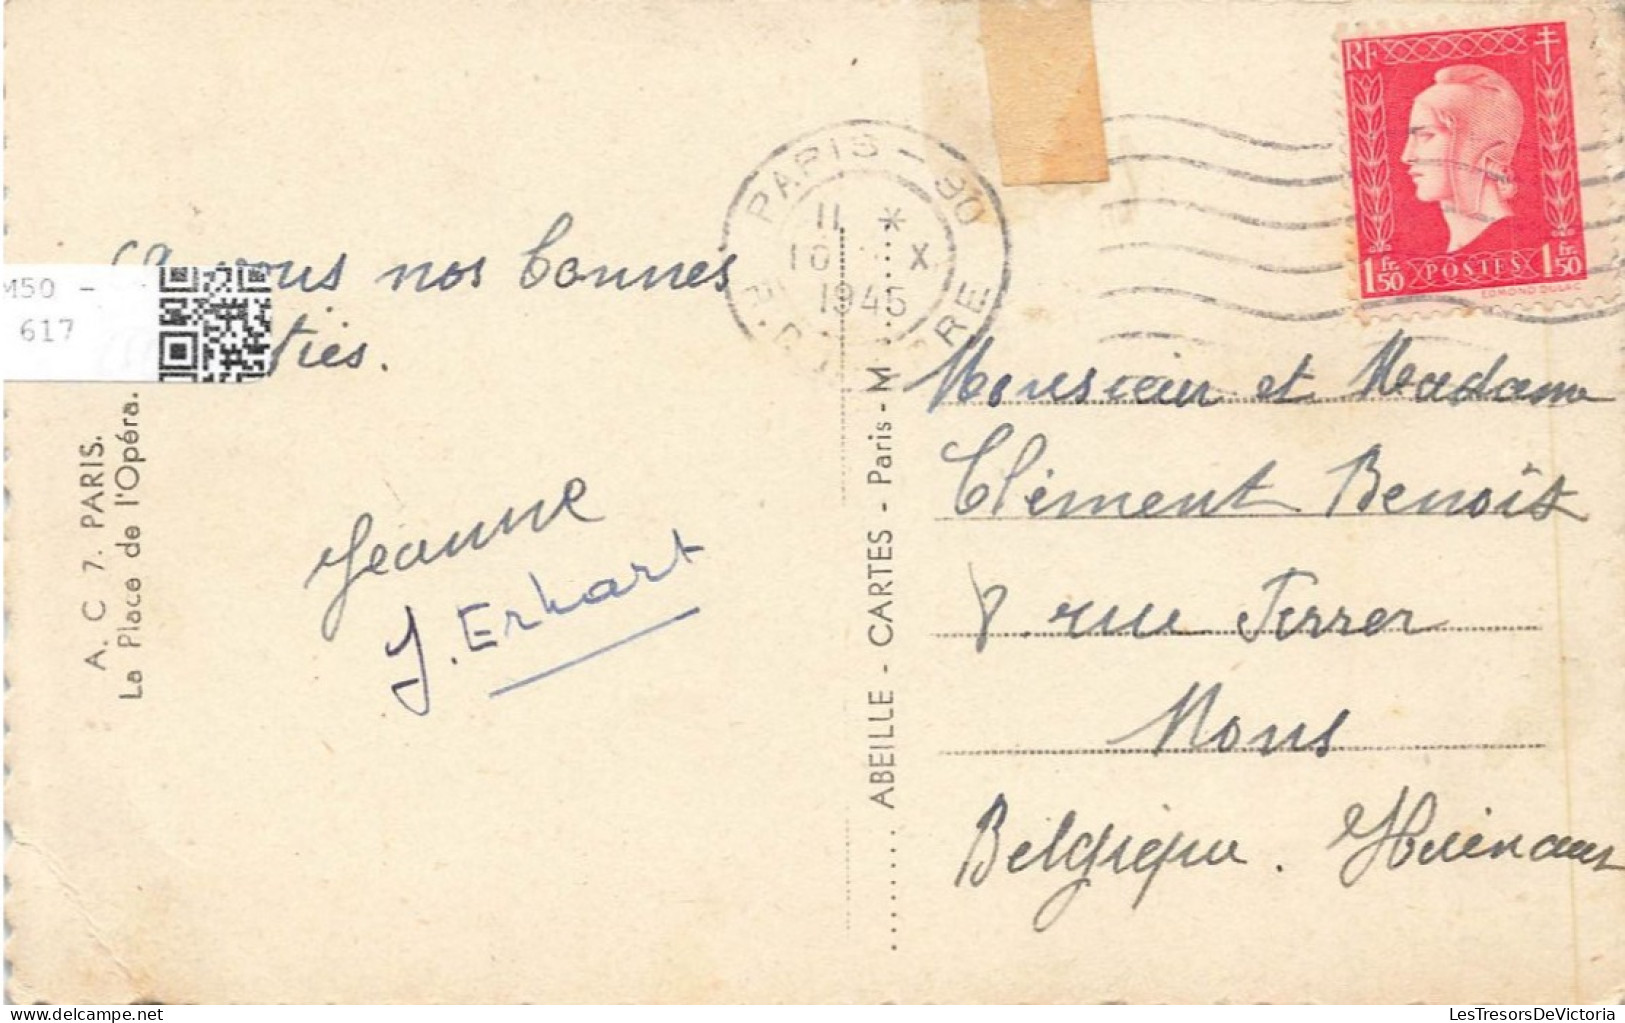 M50 -
617
A. C 7. PARIS.
La Place de l'Opéra.
vous nos bonnes
ties.
Jeanne
J. Erhart
ABEILLE - CARTES - Paris - M
PARIS - 90
11 *
10 X
1945
RF
1 fr. 50 POSTES 1 fr. 50
EDMOND DULAC
Monsieur et Madame
Clément Benoît
8 rue Ferrer
Mons
Belgique. Hainaut
LesTresorsDeVictoria